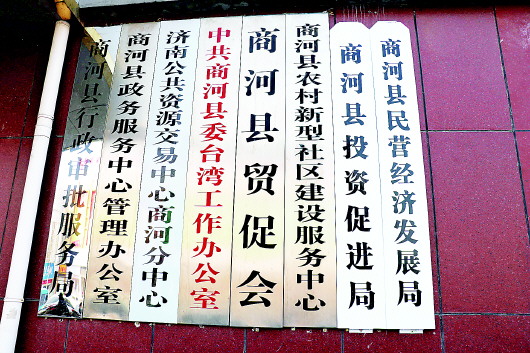 商河县行政审批服务局
商河县政务服务中心管理办公室
济南公共资源交易中心商河分中心
中共商河县委台湾工作办公室
商河县贸促会
商河县农村新型社区建设服务中心
商河县投资促进局
商河县民营经济发展局